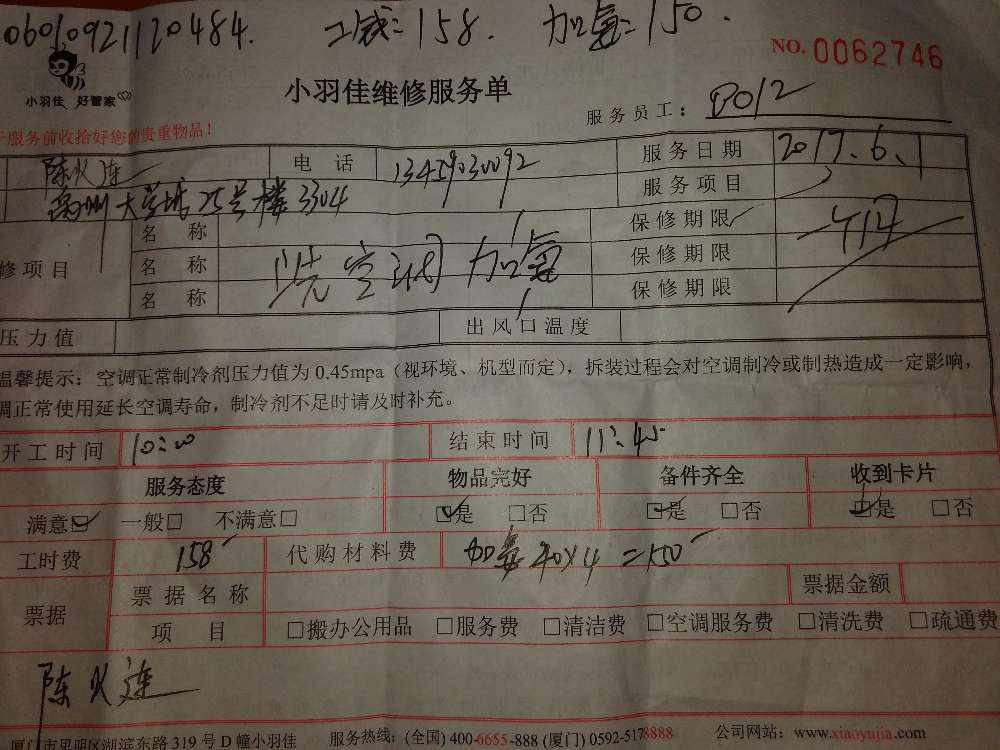 06010921120484. 工减=158. 加氟=150.
NO. 0062746
小羽佳 好管家
小羽佳维修服务单
服务员工: D012
服务前收拾好您的贵重物品!
陈火连 电话 13459030092 服务日期 2017.6.1
大学城25号楼3304 服务项目
名称 保修期限
修项目 名称 洗空调 加氟 保修期限
名称 保修期限
压力值 出风口温度
温馨提示: 空调正常制冷剂压力值为 0.45mpa (视环境、机型而定), 拆装过程会对空调制冷或制热造成一定影响,
调正常使用延长空调寿命, 制冷剂不足时请及时补充。
开工时间 10:00 结束时间 11:45
服务态度 物品完好 备件齐全 收到卡片
满意☑ 一般□ 不满意□ ☑是 □否 ☑是 □否 ☑是 □否
工时费 158 代购材料费 加氟 40×4=150
票据 票据名称 票据金额
项目 □搬办公用品 □服务费 □清洁费 □空调服务费 □清洗费 □疏通费
陈火连
厦门市思明区湖滨东路 319 号 D 幢小羽佳 服务热线: (全国) 400-6655-888 (厦门) 0592-5178888 公司网站: www.xiaoyujia.com